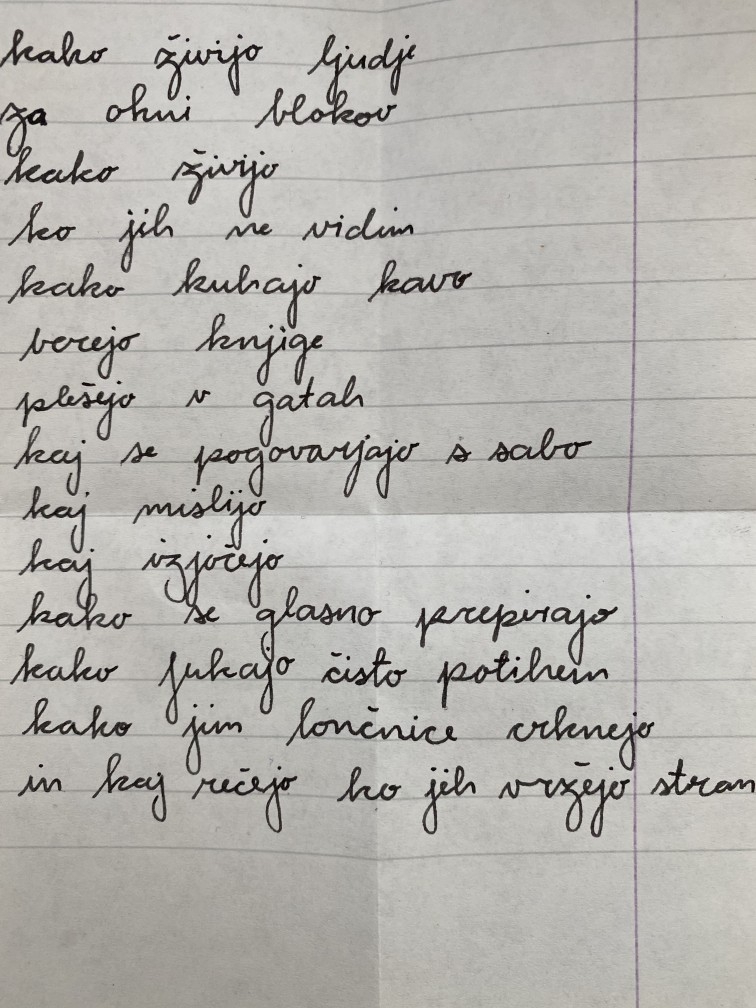 kako živijo ljudje
za okni blokov
kako živijo
ko jih ne vidim
kako kuhajo kavo
berejo knjige
plešejo v gatah
kaj se pogovarjajo s sabo
kaj mislijo
kaj izjočejo
kako se glasno prepirajo
kako jukajo čisto potihem
kako jim lončnice crknejo
in kaj rečejo ko jih vržejo stran